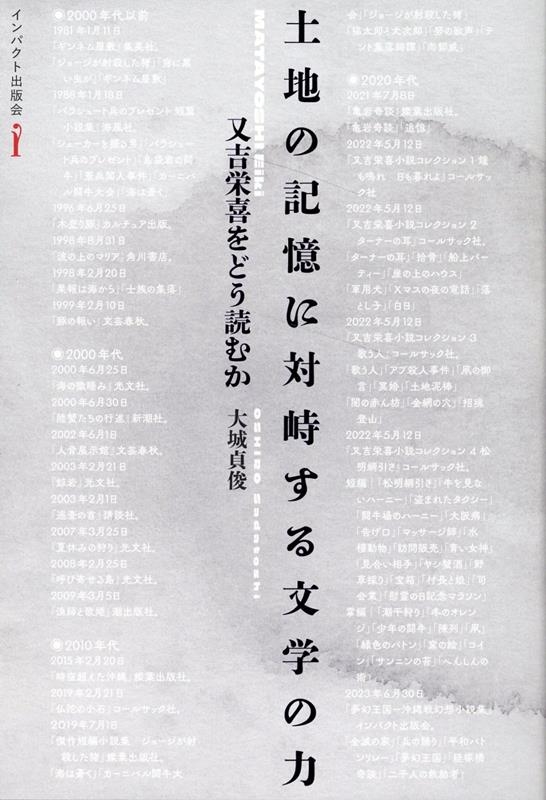 土地の記憶に対峙する文学の力
又吉栄喜をどう読むか
大城貞俊
MATAYOSHI Eiki
OSHIRO Sadatoshi
インパクト出版会
◉2000年代以前
1981年1月11日
『ギンネム屋敷』集英社。
「ジョージが射殺した猪」「窓に黒
い虫が」「ギンネム屋敷」
1988年1月18日
『パラシュート兵のプレゼント 短篇
小説集』海風社。
1996年6月25日
『木登り豚』カルチュア出版。
1998年8月31日
『波の上のマリア』角川書店。
1998年2月20日
『果報は海から』「士族の集落」
1999年2月10日
『豚の報い』文芸春秋。
◉2000年代
2000年6月25日
『海の微睡み』光文社。
2000年6月30日
『陸蟹たちの行進』新潮社。
2002年6月1日
『人骨展示館』文芸春秋。
2003年2月21日
『鯨岩』光文社。
2003年2月1日
『巡査の首』講談社。
2007年3月25日
『夏休みの狩り』光文社。
2008年2月25日
『呼び寄せる島』光文社。
2009年3月5日
『漁師と歌姫』潮出版社。
◉2010年代
2015年2月20日
『時空超えた沖縄』燦葉出版社。
2019年2月21日
『仏陀の小石』コールサック社。
2019年7月1日
『傑作短編小説集 ジョージが射
殺した猪』燦葉出版社。
「海は蒼く」「カーニバル闘牛大
会」「ジョージが射殺した猪」
「猫太郎と犬次郎」「努の歌声」「テ
ント集落奇譚」「尚郭威」
◉2020年代
2021年7月8日
『亀岩奇談』燦葉出版社。
「亀岩奇談」「追憶」
2022年5月12日
『又吉栄喜小説コレクション1 鐘
も鳴れ 日も暮れよ』コールサッ
ク社
2022年5月12日
『又吉栄喜小説コレクション2
ターナーの耳』コールサック社。
「ターナーの耳」「拾骨」「船上パー
ティー」「崖の上のハウス」
「軍用犬」「Xマスの夜の電話」「落
とし子」「白日」
2022年5月12日
『又吉栄喜小説コレクション3
歌う人』コールサック社。
「歌う人」「アブ殺人事件」「凧の御
言」「冥婚」「土地泥棒」
「闇の赤ん坊」「金網の穴」「招魂
登山」
2022年5月12日
『又吉栄喜小説コレクション4 松
明綱引き』コールサック社。
短編:「松明綱引き」「牛を見な
いハーニー」「盗まれたタクシー」
「闘牛場のハーニー」「大阪病」
「告げ口」「マッサージ師」「水
棲動物」「訪問販売」「青い女神」
「見合い相手」「ヤシ蟹酒」「野
草採り」「宝箱」「村長と娘」「司
会業」「慰霊の日記念マラソン」
掌編:「潮干狩り」「冬のオレン
ジ」「少年の闘牛」「陳列」「凧」
「緑色のバトン」「窯の絵」「コイ
ン」「サンニンの苔」「へんしんの
術」
2023年6月30日
『夢幻王国―沖縄戦幻想小説集』
インパクト出版会。
「全滅の家」「兵の踊り」「平和バト
ンリレー」「夢幻王国」「経塚橋
奇談」「二千人の救助者」